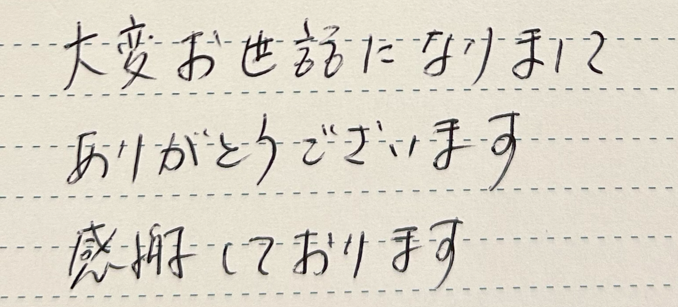 大変お世話になりまして
ありがとうございます
感謝しております